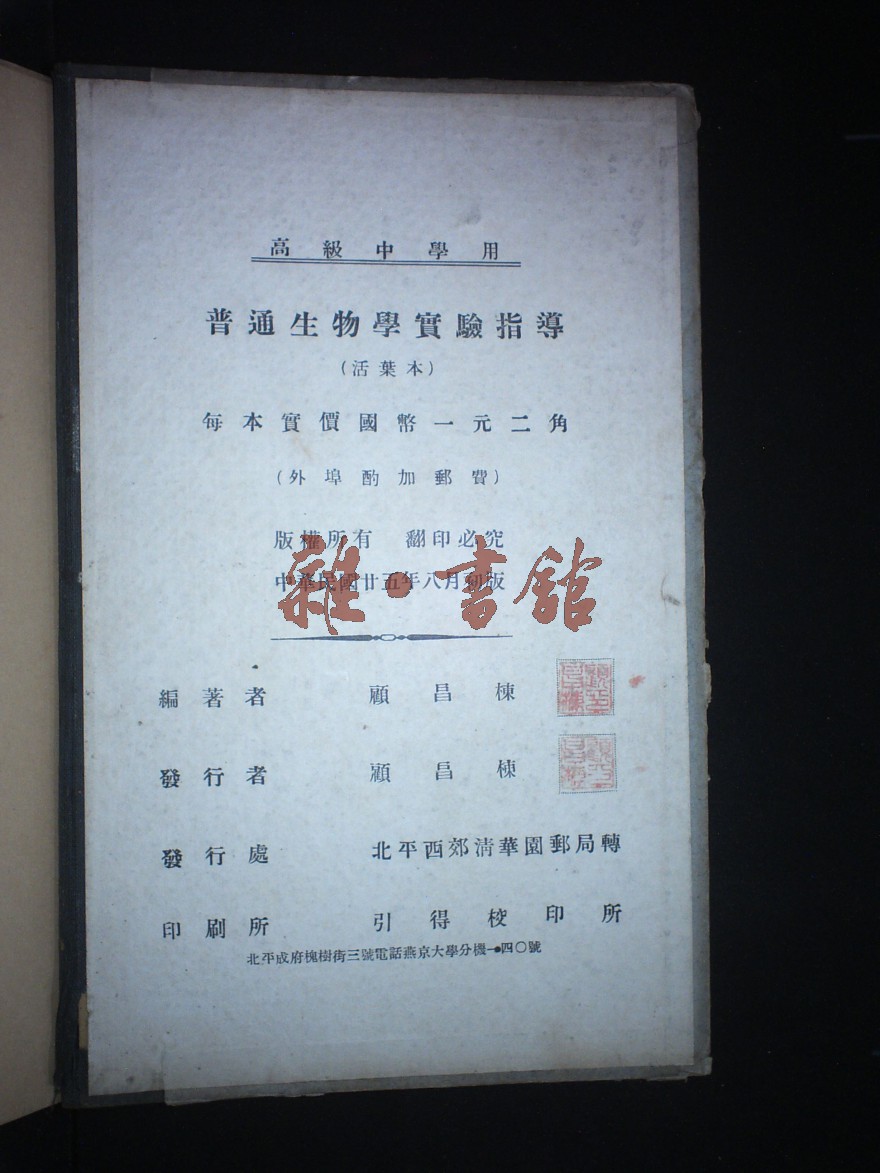 高級中學用
普通生物學實驗指導
(活葉本)
每本實價國幣一元二角
(外埠酌加郵費)
版權所有 翻印必究
中華民國廿五年八月初版
雜·書館
編著者 顧昌棟
發行者 顧昌棟
發行處 北平西郊清華園郵局轉
印刷所 引得校印所
北平成府槐樹街三號電話燕京大學分機一四〇號